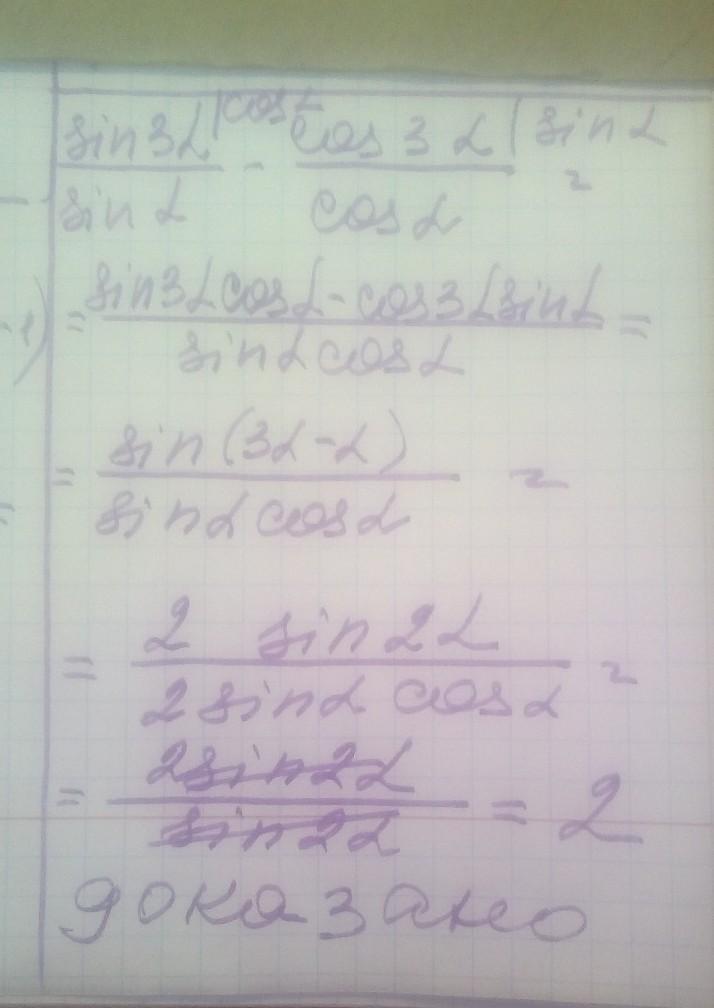 sin3α |cosα − cos3α |sinα =
sinα cosα
= sin3αcosα - cos3αsinα =
sinαcosα
= sin(3α-α) =
sinαcosα
= 2 sin2α =
2sinα cosα
= 2sin2α = 2
sin2α
доказано